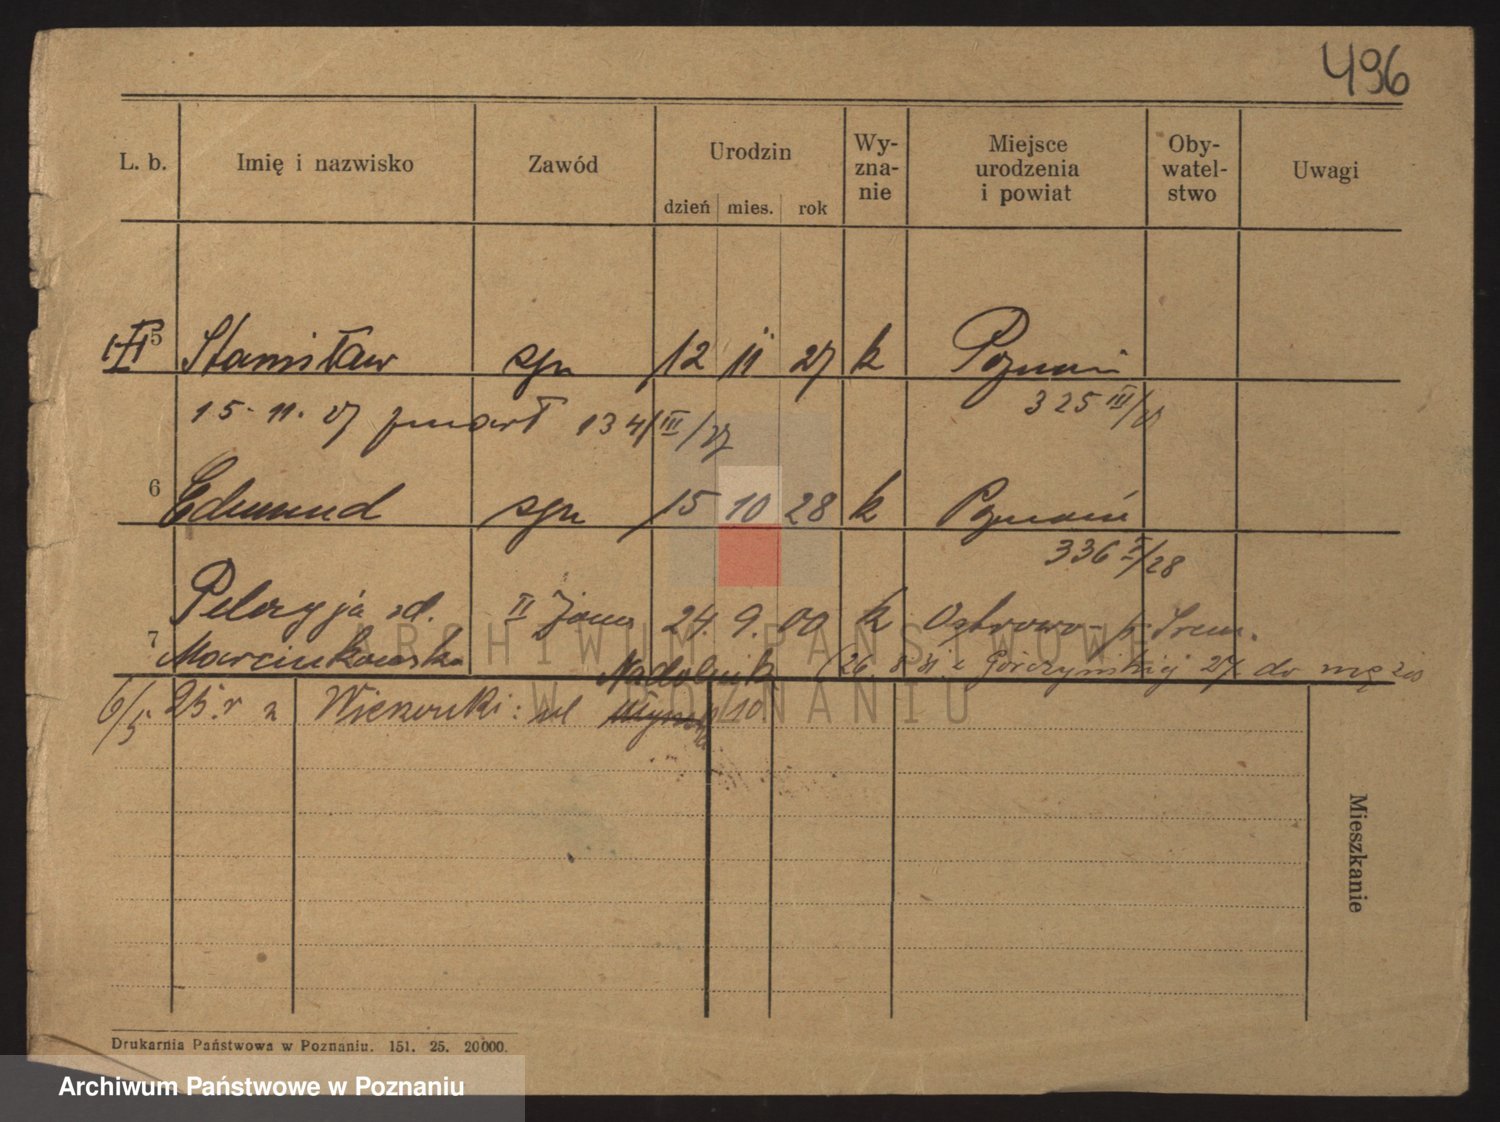 496
L. b. Imię i nazwisko Zawód Urodzin dzień mies. rok Wy-zna-nie Miejsce urodzenia i powiat Oby-watel-stwo Uwagi
5 Stanisław syn 12 11 27 k Poznań
15. 11. 27 zmarł 134/III/27 325 III/27
6 Edmund syn 15 10 28 k Poznań
336 /28
Pelagja zd. II żona 24. 9. 00 k Ostrowo p. Śrem.
7 Marcinkowska Nadolnik (26. 8. 31 z Górczyńskiej 27. do męża
6/5. 25. r z : ul 10
Mieszkanie
Drukarnia Państwowa w Poznaniu. 151. 25. 20000.
ARCHIWUM PAŃSTWOWE
W POZNANIU
Archiwum Państwowe w Poznaniu